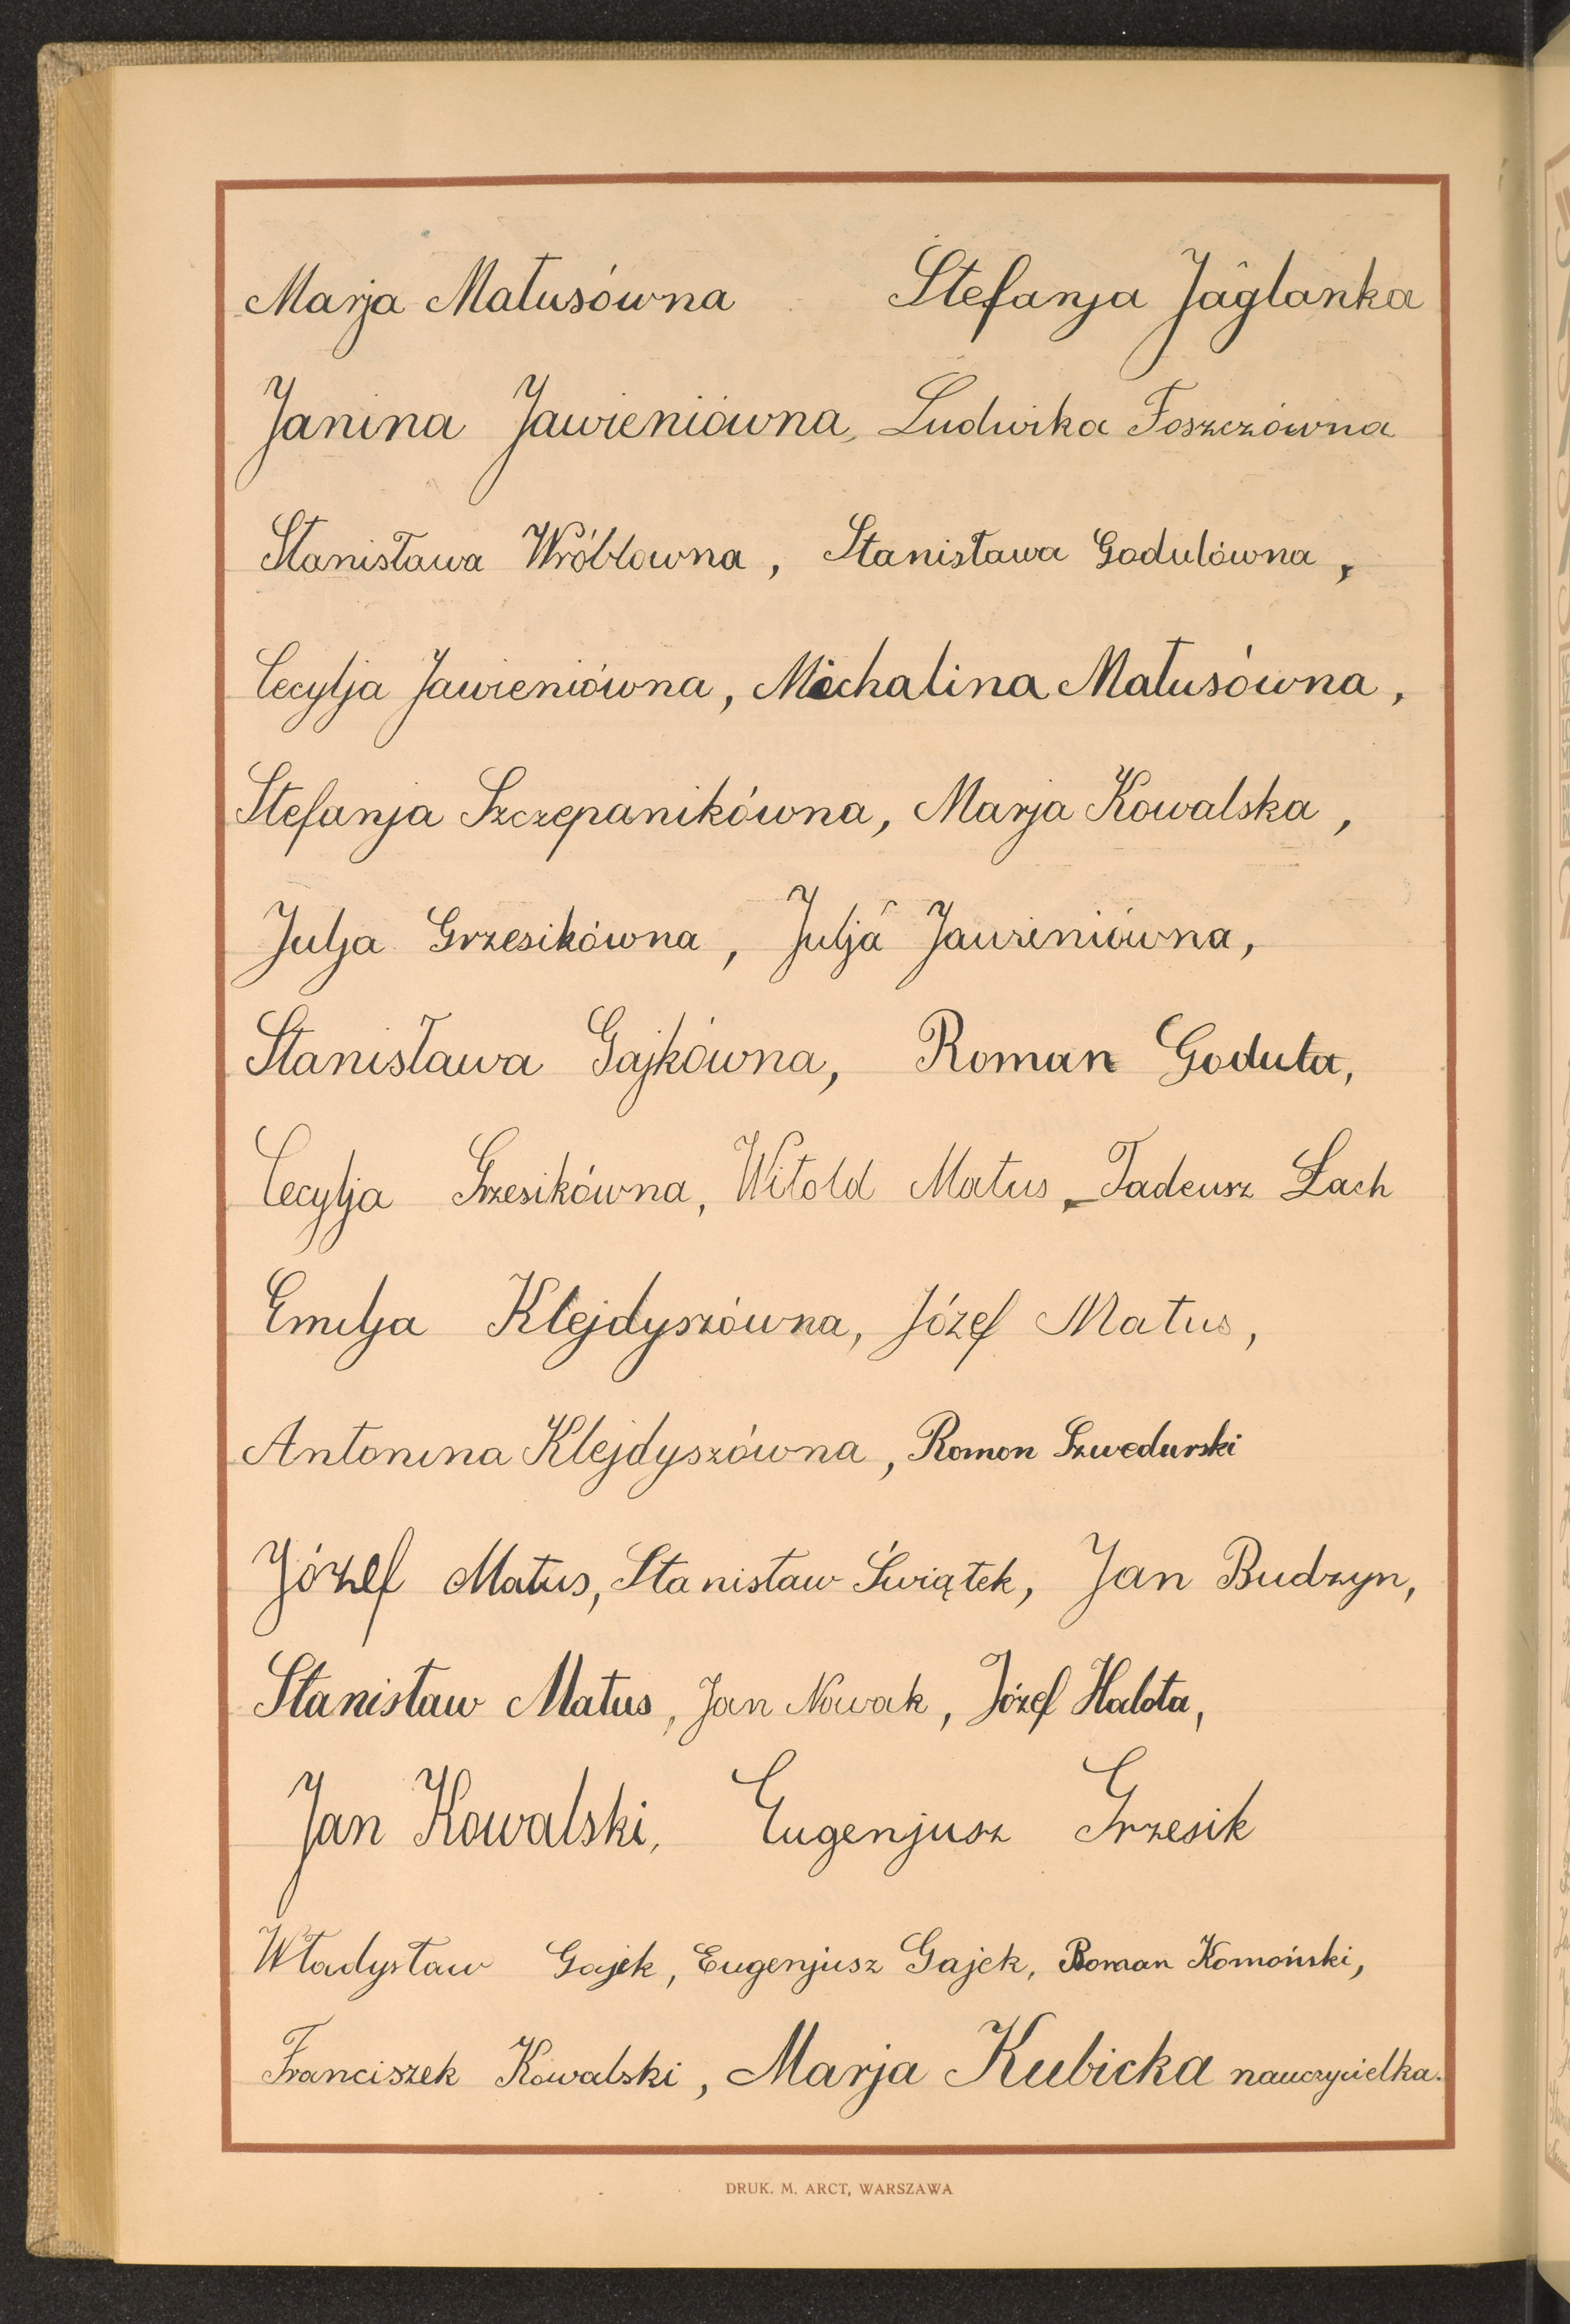 Marja Matusówna Stefanja Jaglanka
Janina Jawieniówna, Ludwika Foszczówna
Stanisława Wróblowna, Stanisława Godulówna,
Cecylja Jawieniówna, Michalina Matusówna,
Stefanja Szczepanikówna, Marja Kowalska,
Julja Grzesikówna, Julja Jawieniówna,
Stanisława Gajkówna, Roman Goduła,
Cecylja Grzesikówna, Witold Matus, Tadeusz Łach
Emilja Klejdyszówna, Józef Matus,
Antonina Klejdyszówna, Roman Szwedurski
Józef Matus, Stanisław Świątek, Jan Budzyn,
Stanisław Matus, Jan Nowak, Józef Halota,
Jan Kowalski, Eugenjusz Grzesik
Władysław Gajek, Eugenjusz Gajek, Roman Komoński,
Franciszek Kowalski, Marja Kubicka nauczycielka.
DRUK. M. ARCT, WARSZAWA